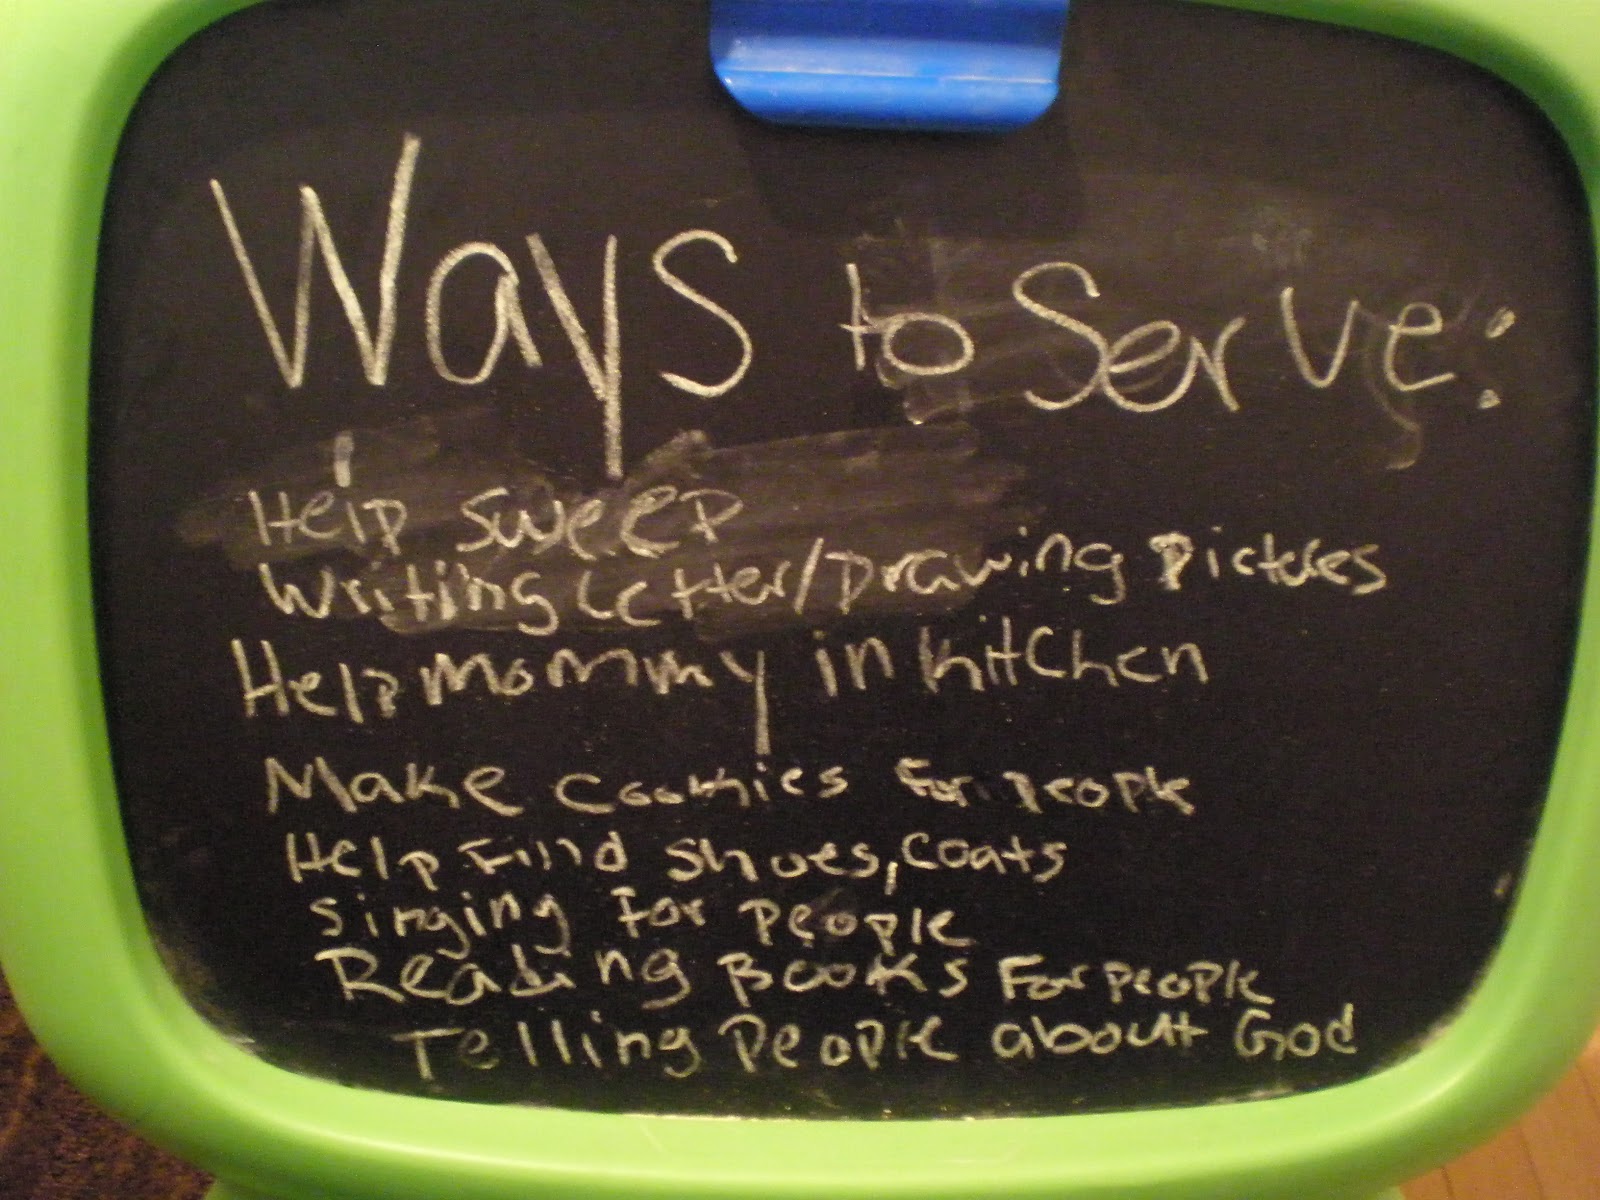 Ways to Serve:
Help Sweep
Writing Letter/Drawing Pictures
Help Mommy in kitchen
Make cookies for people
Help Find shoes, coats
singing for people
Reading Books For people
Telling people about God